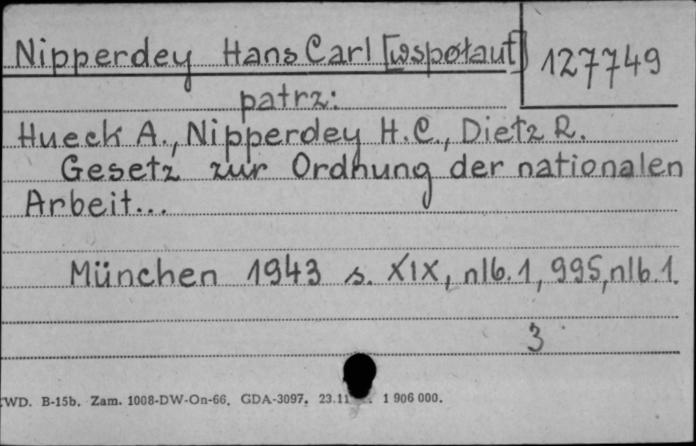 Nipperdey Hans Carl [wspołaut]
127749
patrz:
Hueck A., Nipperdey H.C., Dietz R.
Gesetz zur Ordnung der nationalen
Arbeit...
München 1943 s. XIX, nlb.1, 995, nlb.1.
3
WD. B-15b. Zam. 1008-DW-On-66. GDA-3097. 23.11 1 906 000.